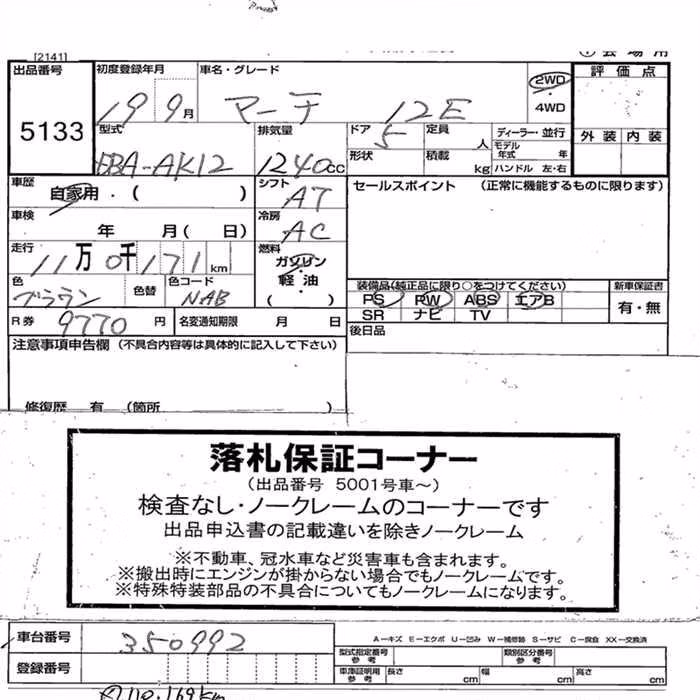 [2141]
出品番号 5133
初度登録年月 19 9月
車名・グレード マーチ 12E
2WD
・
4WD
評価点
外装 内装
型式 DBA-AK12
排気量 1240cc
ドア 5
定員 人
ディーラー・並行
モデル年式 年
形状
積載 kg
ハンドル 左・右
車歴 自家用・( )
シフト AT
セールスポイント (正常に機能するものに限ります)
車検 年 月( 日)
冷房 AC
走行 11万0千171km
燃料 ガソリン
軽油
( )
色 ブラウン
色替
色コード NAB
装備品(純正品に限り○をつけてください)
PS PW ABS エアB
SR ナビ TV
新車保証書
有・無
R券 9770円
名変通知期限 月 日
後日品
注意事項申告欄 (不具合内容等は具体的に記入して下さい)
修復歴 有 (箇所 )
落札保証コーナー
(出品番号 5001号車～)
検査なし・ノークレームのコーナーです
出品申込書の記載違いを除きノークレーム
※不動車、冠水車など災害車も含まれます。
※搬出時にエンジンが掛からない場合でもノークレームです。
※特殊特装部品の不具合についてもノークレームになります。
車台番号 350992
A－キズ E－エクボ U－凹み W－補修跡 S－サビ C－腐食 XX－交換済
型式指定番号 参考
類別区分番号 参考
登録番号
車庫証明用 参考
長さ cm 幅 cm 高さ cm
110,169km